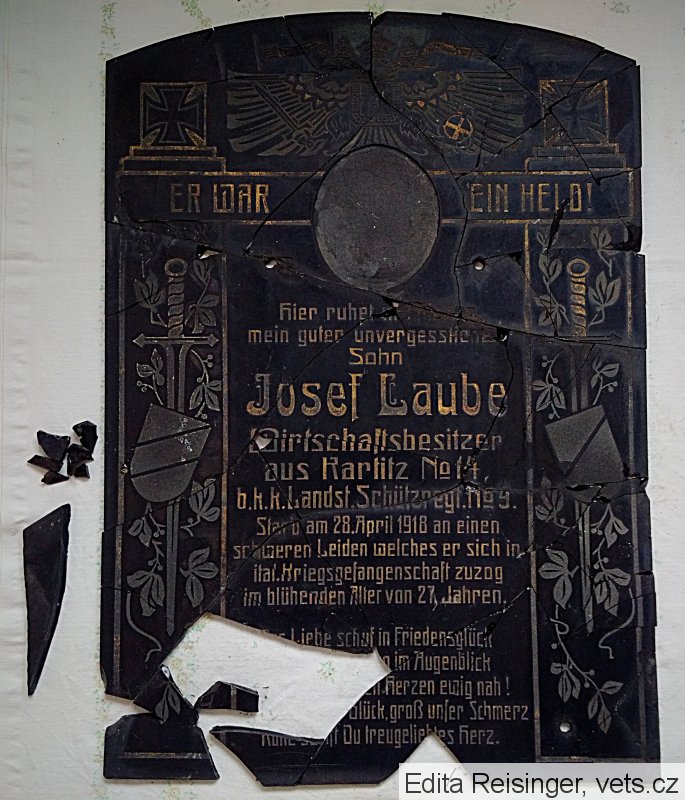 ER WAR EIN HELD!
Hier ruhet
mein guter unvergesslicher
Sohn
Josef Laube
Wirtschaftsbesitzer
aus Kartitz No 14,
b.k.k. Landst. Schützregt. No 9.
Starb am 28. April 1918 an einen
schweren Leiden welches er sich in
ital. Kriegsgefangenschaft zuzog
im blühenden Alter von 27 Jahren.
Liebe schuf in Friedensglück
im Augenblick
Herzen ewig nah!
Glück, groß unser Schmerz
Ruhe sanft Du treugeliebtes Herz.
Edita Reisinger, vets.cz